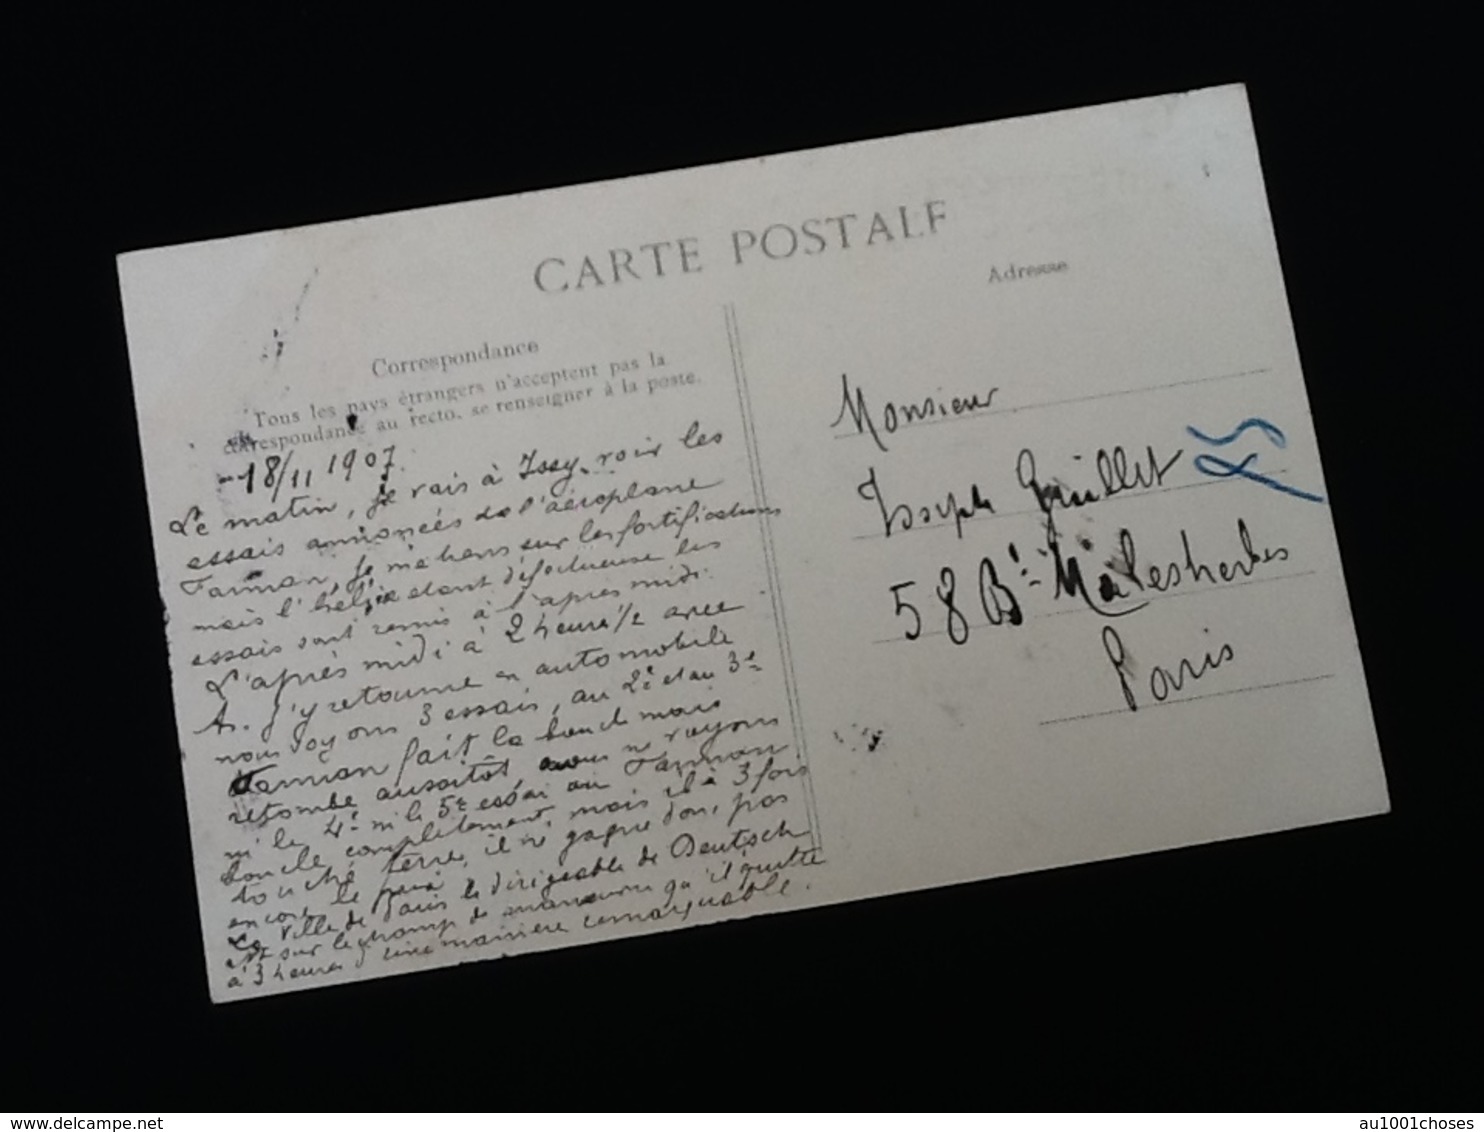 CARTE POSTALE
Correspondance
Tous les pays étrangers n'acceptent pas la
correspondance au recto, se renseigner à la poste.
18/11 1907
Le matin, je vais à Issy, voir les
essais annoncés de l'aéroplane
Farman, je m'éberis sur les fortifications
mais l'hélice étant défectueuse les
essais sont remis à l'après midi.
L'après midi à 2 heures 1/2 avec
A. j'y retourne en automobile
nous voyons 3 essais, au 2e et au 3e
Farman fait la boucle mais
retombe aussitôt, nous ne voyons
ni le 4e ni le 5e essai où Farman
boucle complètement, mais il a 3 fois
touché terre, il ne gagne donc pas
encore le prix
La Ville de Paris le dirigeable de Deutsch
est sur le champ de manœuvre qu'il quitte
à 3 heures d'une manière remarquable.
Adresse
Monsieur
Joseph Guillet
58 Bd Malesherbes
Paris
www.delcampe.net
au1001choses